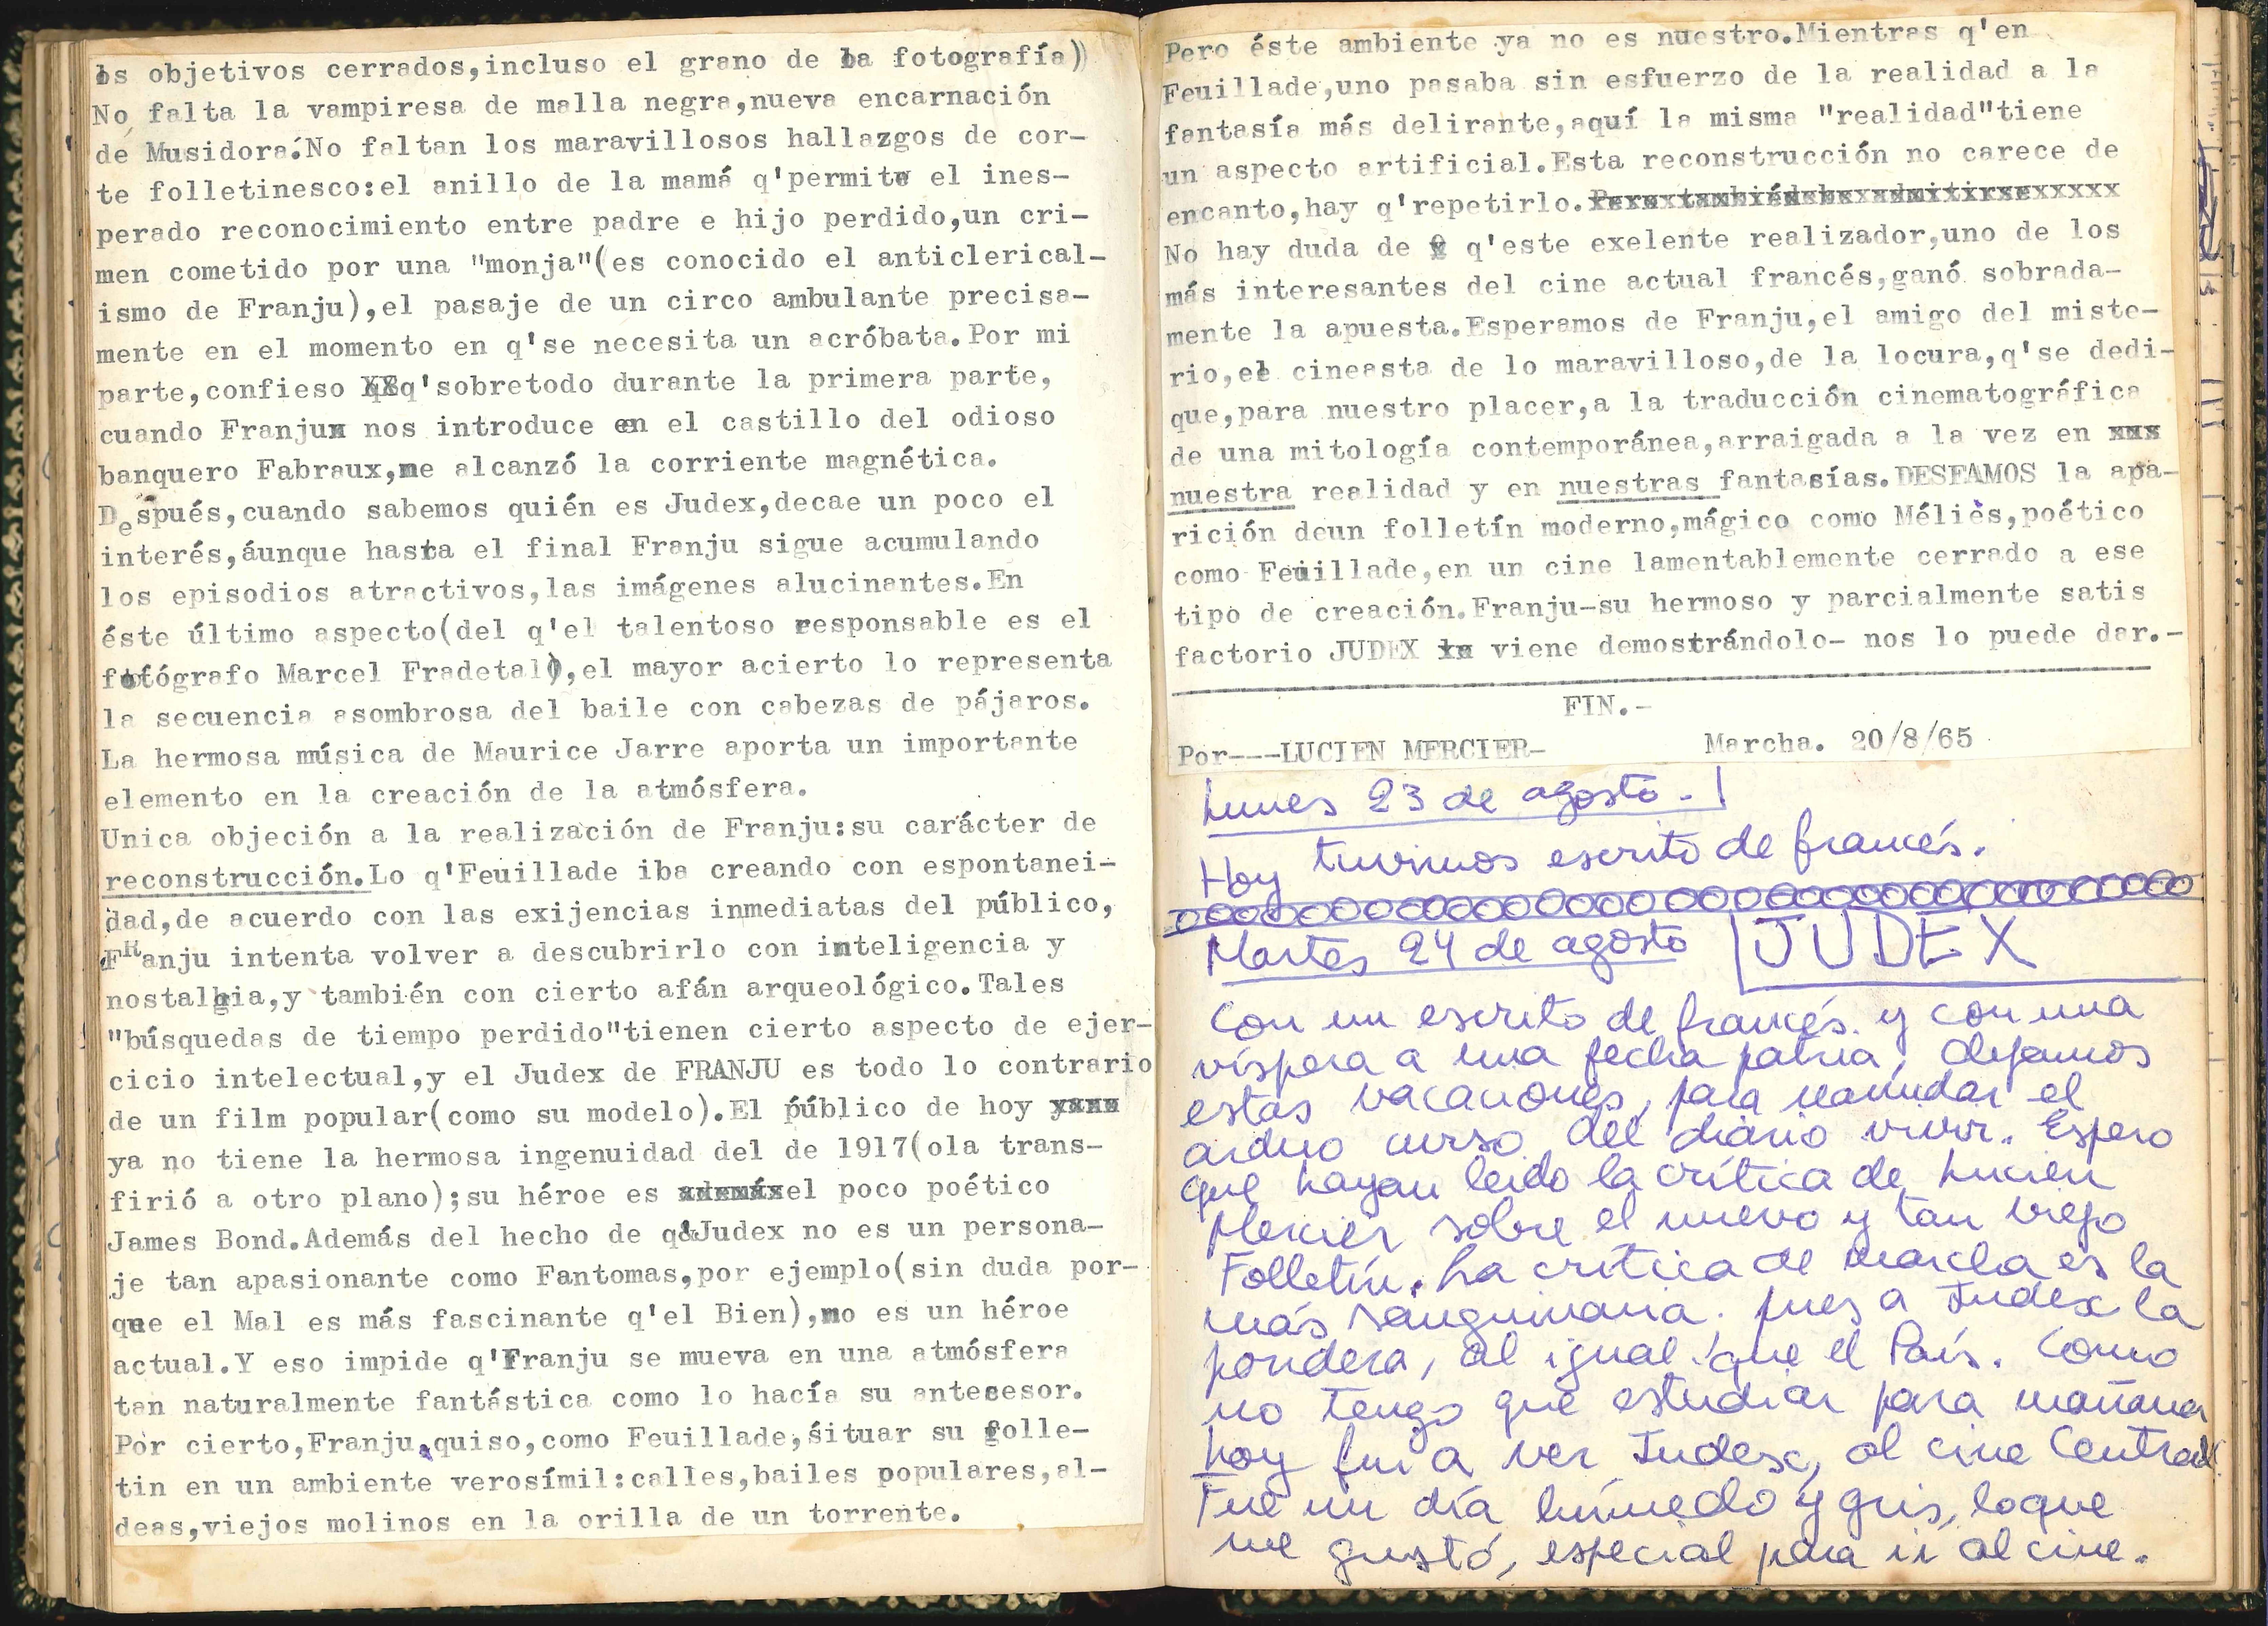 los objetivos cerrados,incluso el grano de la fotografía)
No falta la vampiresa de malla negra,nueva encarnación
de Musidora.No faltan los maravillosos hallazgos de cor-
te folletinesco:el anillo de la mamá q'permite el ines-
perado reconocimiento entre padre e hijo perdido,un cri-
men cometido por una "monja"(es conocido el anticlerical-
ismo de Franju),el pasaje de un circo ambulante precisa-
mente en el momento en q'se necesita un acróbata.Por mi
parte,confieso q'sobretodo durante la primera parte,
cuando Franju nos introduce en el castillo del odioso
banquero Fabraux,me alcanzó la corriente magnética.
Después,cuando sabemos quién es Judex,decae un poco el
interés,áunque hasta el final Franju sigue acumulando
los episodios atractivos,las imágenes alucinantes.En
éste último aspecto(del q'el talentoso responsable es el
fotógrafo Marcel Fradetal),el mayor acierto lo representa
la secuencia asombrosa del baile con cabezas de pájaros.
La hermosa música de Maurice Jarre aporta un importante
elemento en la creación de la atmósfera.
Unica objeción a la realización de Franju:su carácter de
reconstrucción.Lo q'Feuillade iba creando con espontanei-
dad,de acuerdo con las exijencias inmediatas del público,
FRanju intenta volver a descubrirlo con inteligencia y
nostalgia,y también con cierto afán arqueológico.Tales
"búsquedas de tiempo perdido"tienen cierto aspecto de ejer-
cicio intelectual,y el Judex de FRANJU es todo lo contrario
de un film popular(como su modelo).El público de hoy
ya no tiene la hermosa ingenuidad del de 1917(ola trans-
firió a otro plano);su héroe es el poco poético
James Bond.Además del hecho de q'Judex no es un persona-
je tan apasionante como Fantomas,por ejemplo(sin duda por-
que el Mal es más fascinante q'el Bien),no es un héroe
actual.Y eso impide q'Franju se mueva en una atmósfera
tan naturalmente fantástica como lo hacía su antecesor.
Por cierto,Franju,quiso,como Feuillade,situar su folle-
tin en un ambiente verosímil:calles,bailes populares,al-
deas,viejos molinos en la orilla de un torrente.
Pero éste ambiente ya no es nuestro.Mientras q'en
Feuillade,uno pasaba sin esfuerzo de la realidad a la
fantasía más delirante,aquí la misma "realidad"tiene
un aspecto artificial.Esta reconstrucción no carece de
encanto,hay q'repetirlo.
No hay duda de q'este exelente realizador,uno de los
más interesantes del cine actual francés,ganó sobrada-
mente la apuesta.Esperamos de Franju,el amigo del miste-
rio,el cineasta de lo maravilloso,de la locura,q'se dedi-
que,para nuestro placer,a la traducción cinematográfica
de una mitología contemporánea,arraigada a la vez en
nuestra realidad y en nuestras fantasías.DESEAMOS la apa-
rición deun folletín moderno,mágico como Méliès,poético
como Feuillade,en un cine lamentablemente cerrado a ese
tipo de creación.Franju-su hermoso y parcialmente satis
factorio JUDEX viene demostrándolo- nos lo puede dar.-
FIN.-
Por---LUCIEN MERCIER- Marcha. 20/8/65
Lunes 23 de agosto.-
Hoy tuvimos escrito de francés.
Martes 24 de agosto JUDEX
Con un escrito de francés y con una
víspera a una fecha patria, dejamos
estas vacaciones, para reanudar el
arduo curso del diario vivir. Espero
que hayan leido la crítica de Lucien
Mercier sobre el nuevo y tan viejo
Folletín. La crítica de marcha es la
más sanguinaria, pues a Judex la
pondera, al igual que el País. Como
no tengo que estudiar para mañana
hoy fui a ver Judex, al cine Central.
Fue un día húmedo y gris, loque
me gustó, especial para ir al cine.